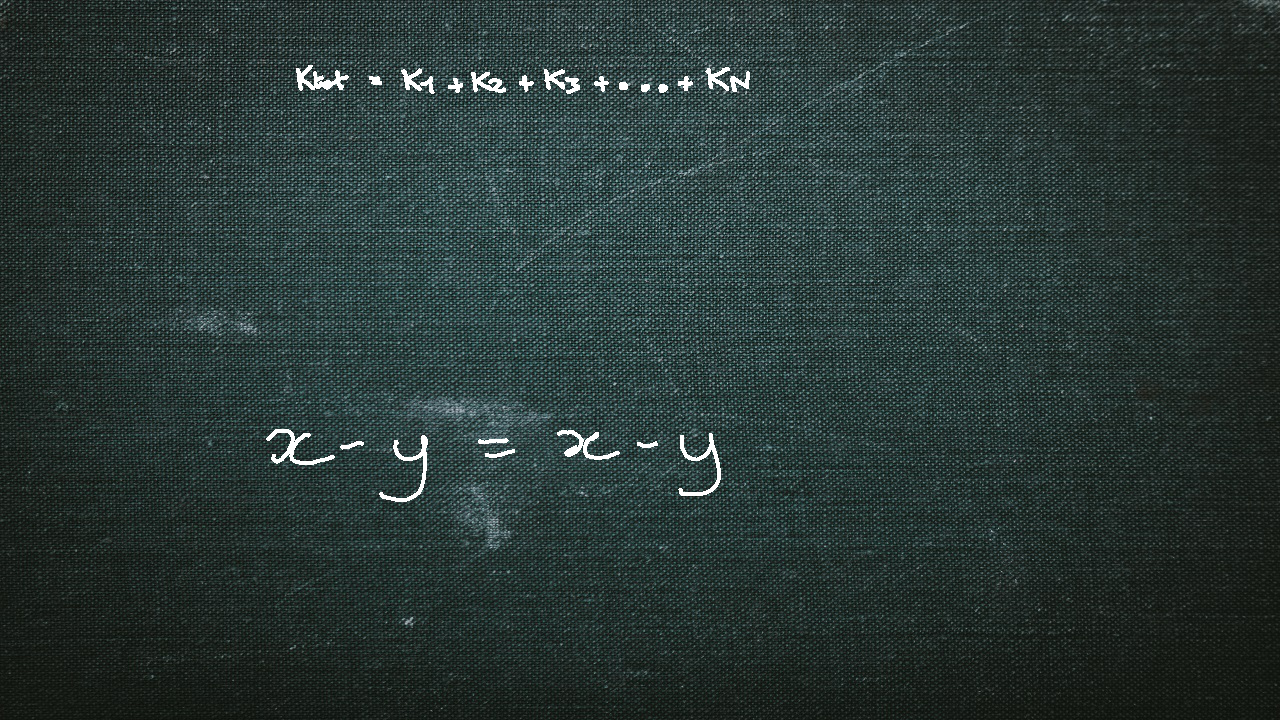 Ktot = K1 + K2 + K3 + ... + KN
x - y = x - y